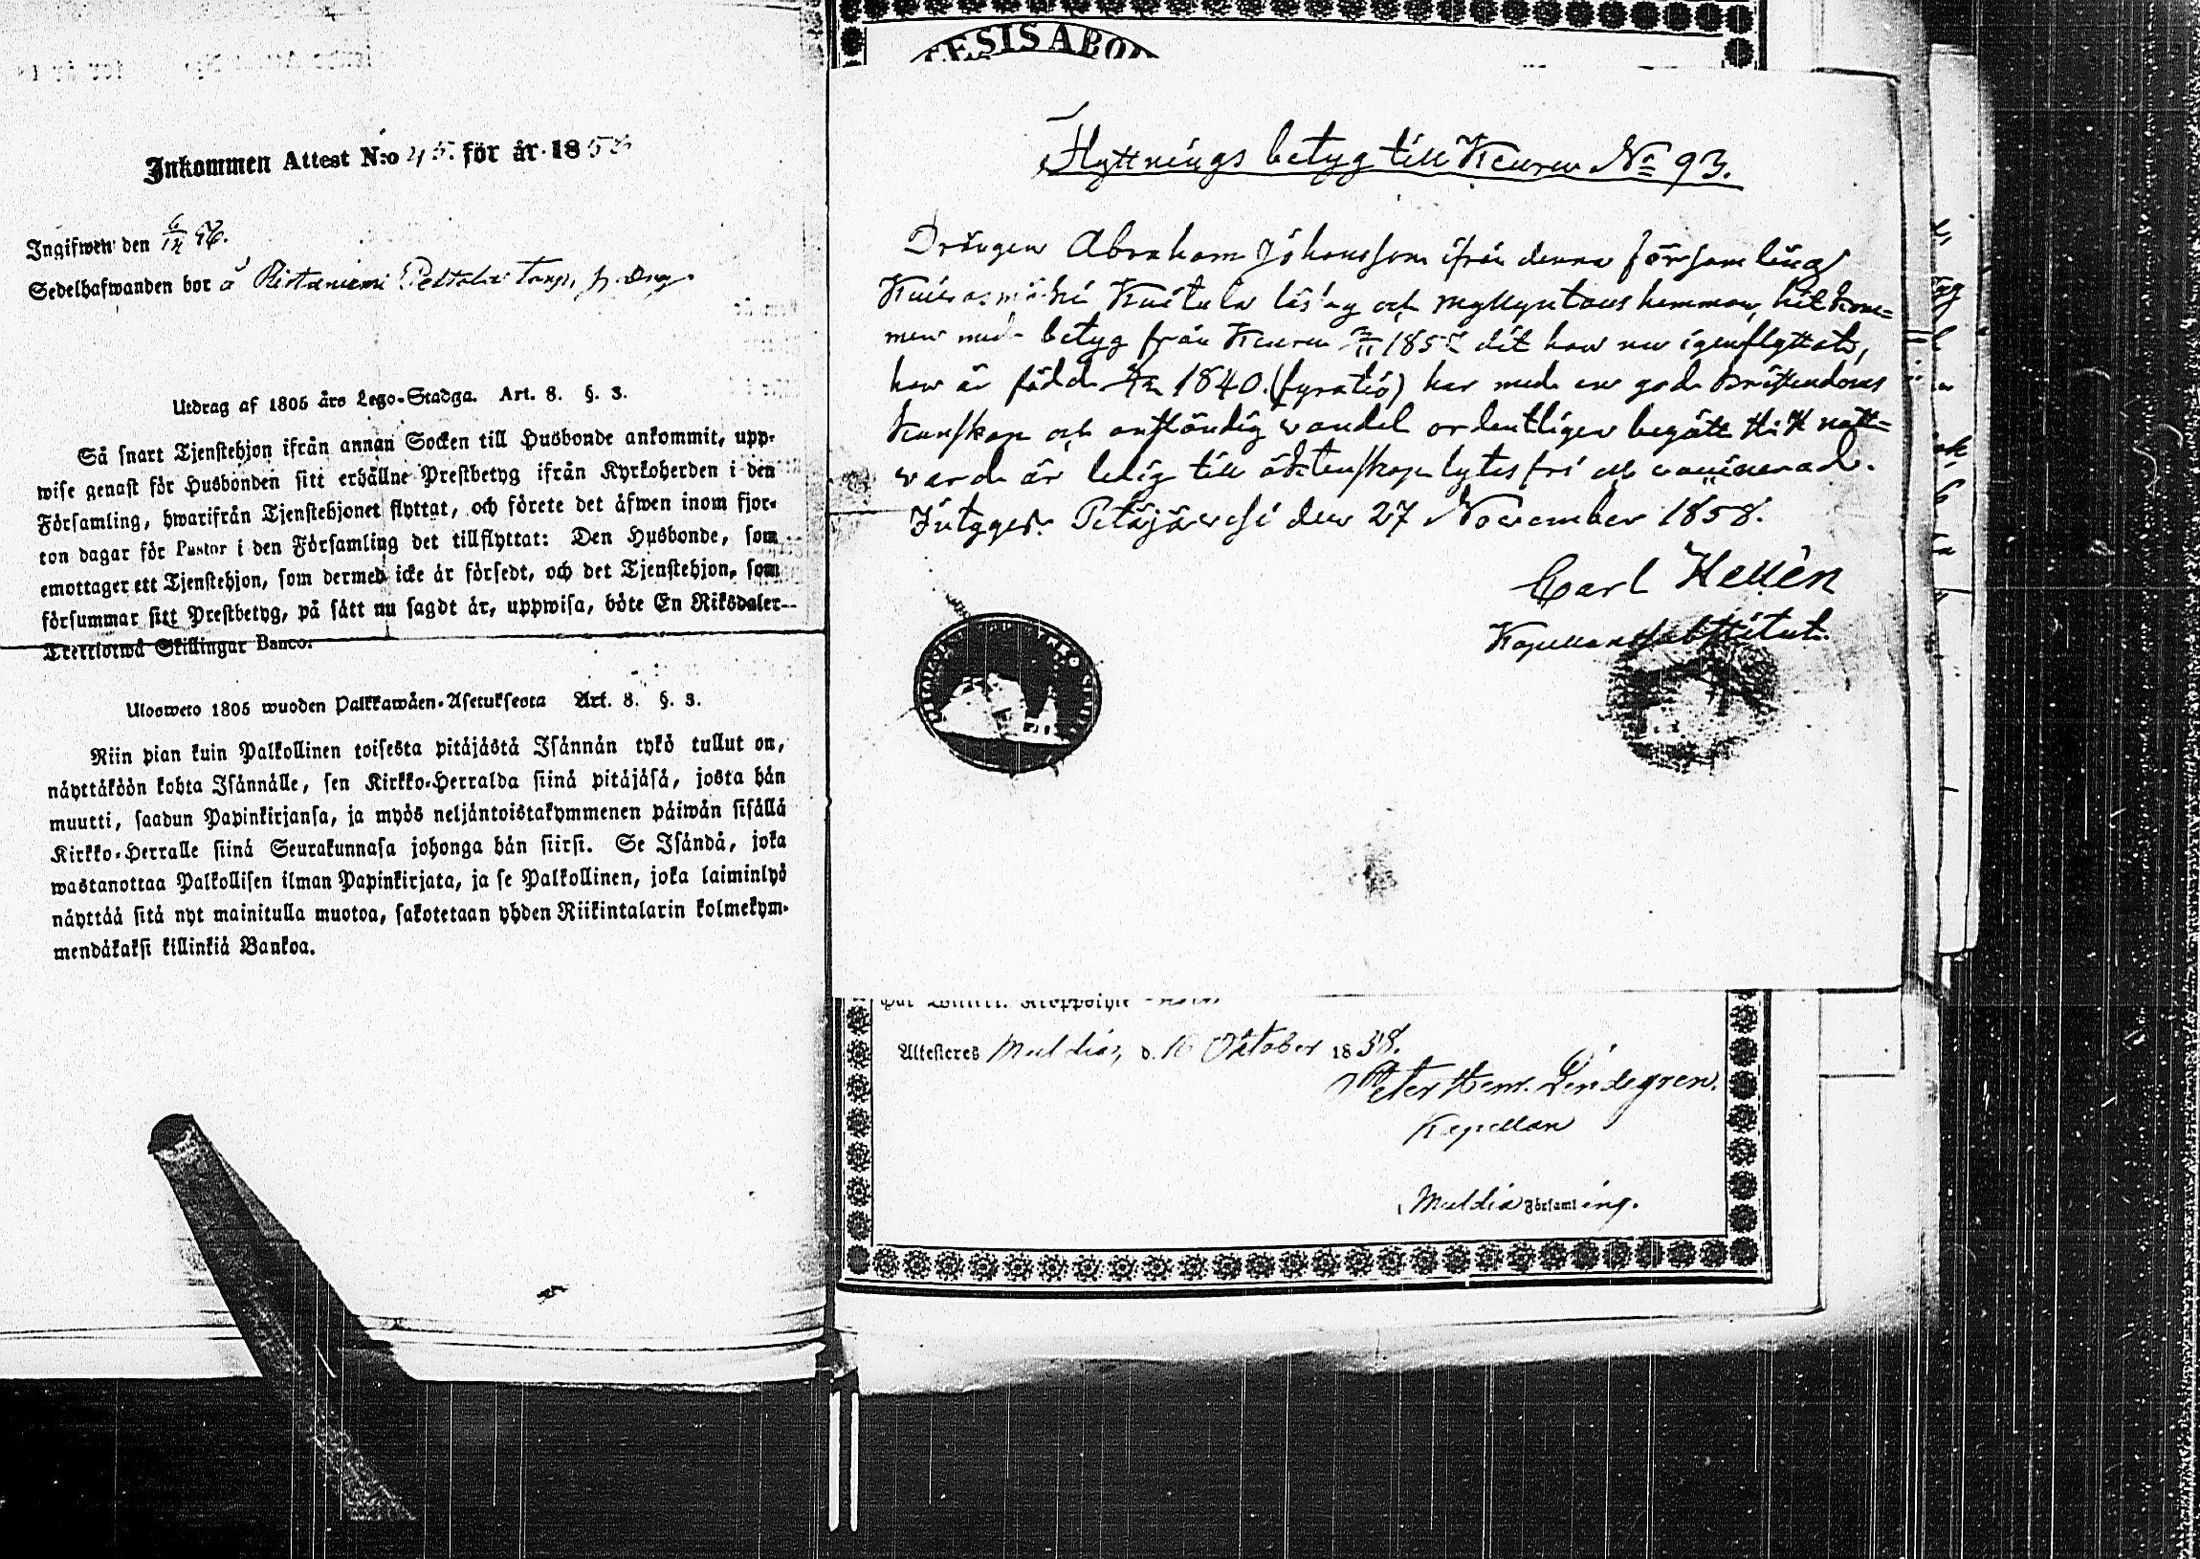 Inkommen Attest N:o 45. för år 1858
Ingifwen den 6/12 58.
Sedelhafwanden bor å Ristaniemi
Utdrag af 1805 års Lego-Stadga. Art. 8. §. 3.
Så snart Tjenstehjon ifrån annan Socken till Husbonde ankommit, upp-
wise genast för Husbonden sitt erhållne Prestbetyg ifrån Kyrkoherden i den
Församling, hwarifrån Tjenstehjonet flyttat, och förete det äfwen inom fjor-
ton dagar för Pastor i den Församling det tillflyttat: Den Husbonde, som
emottager ett Tjenstehjon, som dermed icke är försedt, och det Tjenstehjon, som
försummar sitt Prestbetyg, på sätt nu sagdt är, uppwisa, böte En Riksdaler
Trettiotwå Skillingar Banco.
Ulosweto 1805 wuoden Palkkawäen-Asetuksesta Art. 8. §. 3.
Niin pian kuin Palkollinen toisesta pitäjästä Isännän tykö tullut on,
näyttäköön kohta Isännälle, sen Kirkko-Herralda siinä pitäjäsä, josta hän
muutti, saadun Papinkirjansa, ja myös neljäntoistakymmenen päiwän sisällä
Kirkko-Herralle siinä Seurakunnasa johonga hän siirsi. Se Isändä, joka
wastanottaa Palkollisen ilman Papinkirjata, ja se Palkollinen, joka laiminlyö
näyttää sitä nyt mainitulla muotoa, sakotetaan yhden Riikintalarin kolmekym-
mendäkaksi killinkiä Bankoa.
ESIS ABO
Flyttnings betyg till Keuru No 93.
Drängen Abraham Johansson ifrån denna församling
Kuivasmäki Kaitala lösing och Myllyntaus hemman, hit kom-
men med betyg från Keuru 1855 dit han nu igenflyttat,
han är född 1840 (fyratio) har med en god kristendoms
kunskap och anständig wandel ordentligen begått H. H. natt-
ward är ledig till äktenskap lytesfri och vaccinerad.
Intygas. Petäjäwesi den 27 November 1858.
Carl Hellèn
Kapellanssubstitut.
Attesteres Muldia, d. 10 Oktober 1858.
Peter Henr. Lindegren.
Kapellan
Muldia Församling.